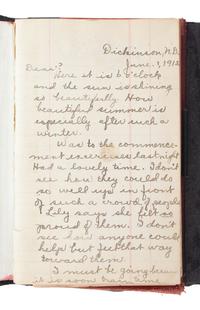 Dickinson, N.D.
June. 1, 1912
Dear?
Here it is 6 o'clock
and the sun is shining
so beautifully. How
beautiful summer is
especially after such a
winter.
Was to the commence-
ment exercises last night
Had a lovely time. I don't
see how they could do
so well up in front
of such a crowd of people
Lily says she felt so
proud of them. I don't
see how anyone could
help but feel that way
toward them.
I must be going
it is soon train time